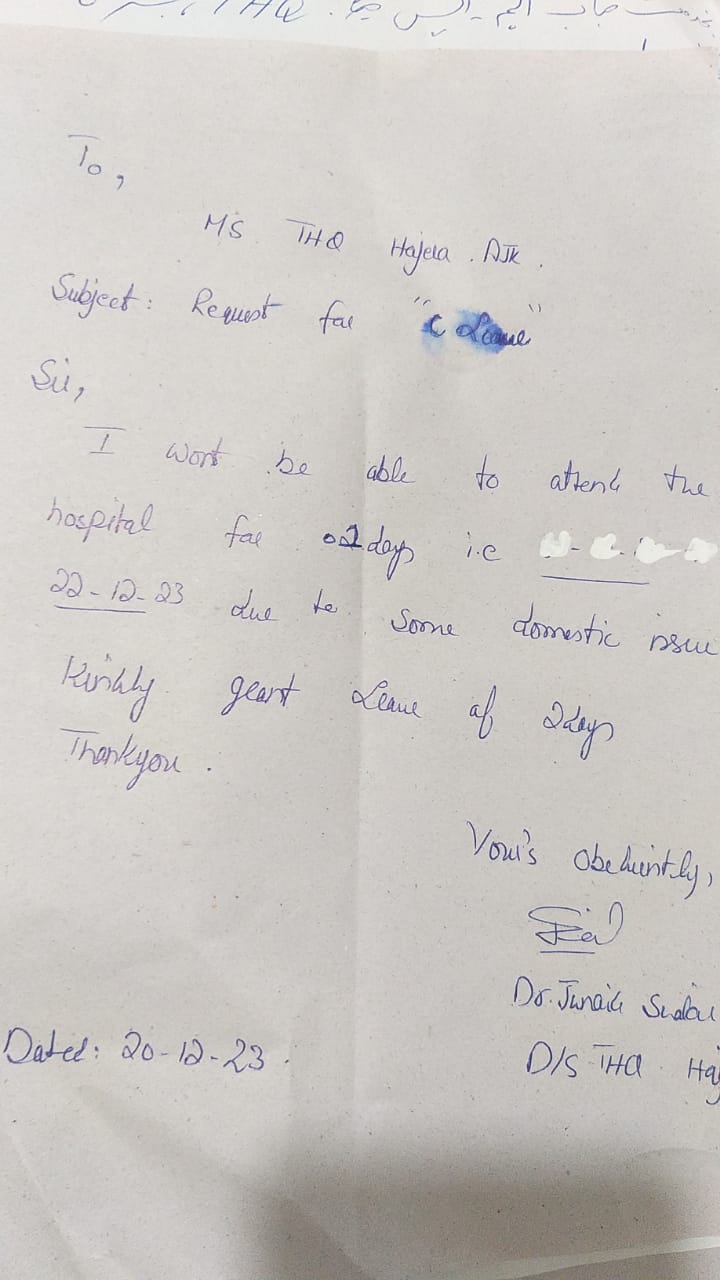 بخدمت جناب ایم ایس THQ
To,
MS THQ Hajera. AJK.
Subject: Request for "C Leave"
Sir,
I wont be able to attend the
hospital for 02 days i.e
22-12-23 due to some domestic issue
Kindly grant Leave of 2days
Thankyou.
Your's Obediently,
Dr. Junaid
D/S THQ Haj
Dated: 20-12-23.